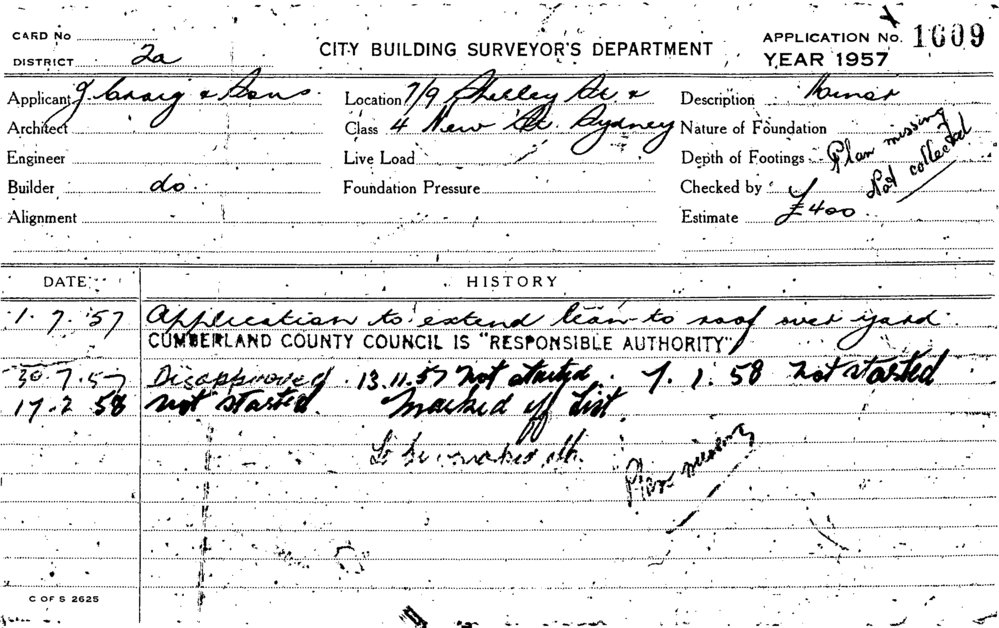 CARD No
DISTRICT 2a
CITY BUILDING SURVEYOR'S DEPARTMENT
APPLICATION No. 1609
YEAR 1957
Applicant J. Craig & Sons.
Location 7/9 Shelley St. &
Description Minor
Architect
Class 4 New St. Sydney
Nature of Foundation
Engineer
Live Load
Depth of Footings
Plan missing
Not collected
Builder do.
Foundation Pressure
Checked by
Alignment
Estimate £400
DATE
HISTORY
1.7.57 Application to extend lean-to roof over yard.
CUMBERLAND COUNTY COUNCIL IS "RESPONSIBLE AUTHORITY"
30.7.57 Disapproved. 13.11.57 Not started. 7.1.58 Not started
17.2.58 Not started. Marked off List.
Plan missing
C OF S 2625